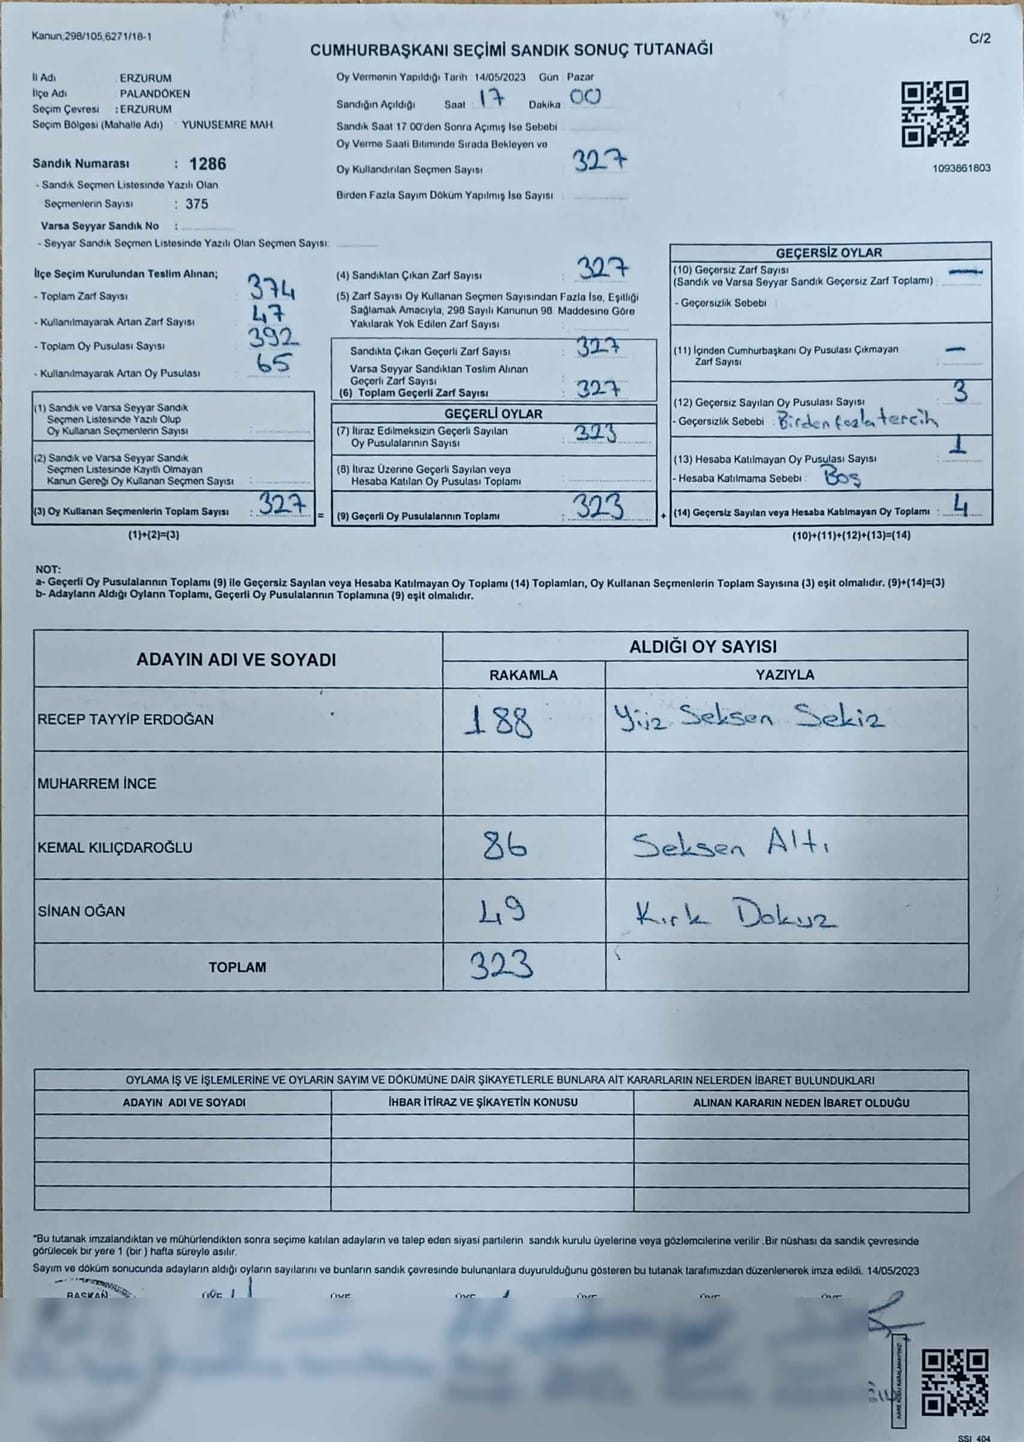 Kanun,298/105,6271/18-1
C/2
CUMHURBAŞKANI SEÇİMİ SANDIK SONUÇ TUTANAĞI
İl Adı : ERZURUM
İlçe Adı : PALANDÖKEN
Seçim Çevresi : ERZURUM
Seçim Bölgesi (Mahalle Adı) : YUNUSEMRE MAH.
Sandık Numarası : 1286
- Sandık Seçmen Listesinde Yazılı Olan
Seçmenlerin Sayısı : 375
Varsa Seyyar Sandık No :
- Seyyar Sandık Seçmen Listesinde Yazılı Olan Seçmen Sayısı:
Oy Vermenin Yapıldığı Tarih : 14/05/2023 Gün : Pazar
Sandığın Açıldığı Saat : 17 Dakika : 00
Sandık Saat 17.00'den Sonra Açımış İse Sebebi :
Oy Verme Saati Bitiminde Sırada Bekleyen ve
Oy Kullandırılan Seçmen Sayısı : 327
Birden Fazla Sayım Döküm Yapılmış İse Sayısı :
1093861803
İlçe Seçim Kurulundan Teslim Alınan;
- Toplam Zarf Sayısı : 374
- Kullanılmayarak Artan Zarf Sayısı : 47
- Toplam Oy Pusulası Sayısı : 392
- Kullanılmayarak Artan Oy Pusulası : 65
(1) Sandık ve Varsa Seyyar Sandık
Seçmen Listesinde Yazılı Olup
Oy Kullanan Seçmenlerin Sayısı :
(2) Sandık ve Varsa Seyyar Sandık
Seçmen Listesinde Kayıtlı Olmayan
Kanun Gereği Oy Kullanan Seçmen Sayısı :
(3) Oy Kullanan Seçmenlerin Toplam Sayısı : 327
(1)+(2)=(3)
=
(4) Sandıktan Çıkan Zarf Sayısı : 327
(5) Zarf Sayısı Oy Kullanan Seçmen Sayısından Fazla İse, Eşitliği
Sağlamak Amacıyla, 298 Sayılı Kanunun 98. Maddesine Göre
Yakılarak Yok Edilen Zarf Sayısı :
Sandıkta Çıkan Geçerli Zarf Sayısı : 327
Varsa Seyyar Sandıktan Teslim Alınan
Geçerli Zarf Sayısı :
(6) Toplam Geçerli Zarf Sayısı : 327
GEÇERLİ OYLAR
(7) İtiraz Edilmeksizin Geçerli Sayılan
Oy Pusulalarının Sayısı : 323
(8) İtiraz Üzerine Geçerli Sayılan veya
Hesaba Katılan Oy Pusulası Toplamı :
(9) Geçerli Oy Pusulalarının Toplamı : 323
+
GEÇERSİZ OYLAR
(10) Geçersiz Zarf Sayısı
(Sandık ve Varsa Seyyar Sandık Geçersiz Zarf Toplamı) : —
- Geçersizlik Sebebi :
(11) İçinden Cumhurbaşkanı Oy Pusulası Çıkmayan : —
Zarf Sayısı
(12) Geçersiz Sayılan Oy Pusulası Sayısı : 3
- Geçersizlik Sebebi : Birden fazla tercih
(13) Hesaba Katılmayan Oy Pusulası Sayısı : 1
- Hesaba Katılmama Sebebi : Boş
(14) Geçersiz Sayılan veya Hesaba Katılmayan Oy Toplamı : 4
(10)+(11)+(12)+(13)=(14)
NOT:
a- Geçerli Oy Pusulalarının Toplamı (9) ile Geçersiz Sayılan veya Hesaba Katılmayan Oy Toplamı (14) Toplamları, Oy Kullanan Seçmenlerin Toplam Sayısına (3) eşit olmalıdır. (9)+(14)=(3)
b- Adayların Aldığı Oyların Toplamı, Geçerli Oy Pusulalarının Toplamına (9) eşit olmalıdır.
ADAYIN ADI VE SOYADI
ALDIĞI OY SAYISI
RAKAMLA YAZIYLA
RECEP TAYYİP ERDOĞAN 188 Yüz Seksen Sekiz
MUHARREM İNCE
KEMAL KILIÇDAROĞLU 86 Seksen Altı
SİNAN OĞAN 49 Kırk Dokuz
TOPLAM 323
OYLAMA İŞ VE İŞLEMLERİNE VE OYLARIN SAYIM VE DÖKÜMÜNE DAİR ŞİKAYETLERLE BUNLARA AİT KARARLARIN NELERDEN İBARET BULUNDUKLARI
ADAYIN ADI VE SOYADI İHBAR İTİRAZ VE ŞİKAYETİN KONUSU ALINAN KARARIN NEDEN İBARET OLDUĞU
*Bu tutanak imzalandıktan ve mühürlendikten sonra seçime katılan adayların ve talep eden siyasi partilerin sandık kurulu üyelerine veya gözlemcilerine verilir .Bir nüshası da sandık çevresinde
görülecek bir yere 1 (bir ) hafta süreyle asılır.
Sayım ve döküm sonucunda adayların aldığı oyların sayılarını ve bunların sandık çevresinde bulunanlara duyurulduğunu gösteren bu tutanak tarafımızdan düzenlenerek imza edildi. 14/05/2023
BAŞKAN ÜYE ÜYE ÜYE ÜYE ÜYE ÜYE
KARE KODU KARALAMAYINIZ!
SSI_404